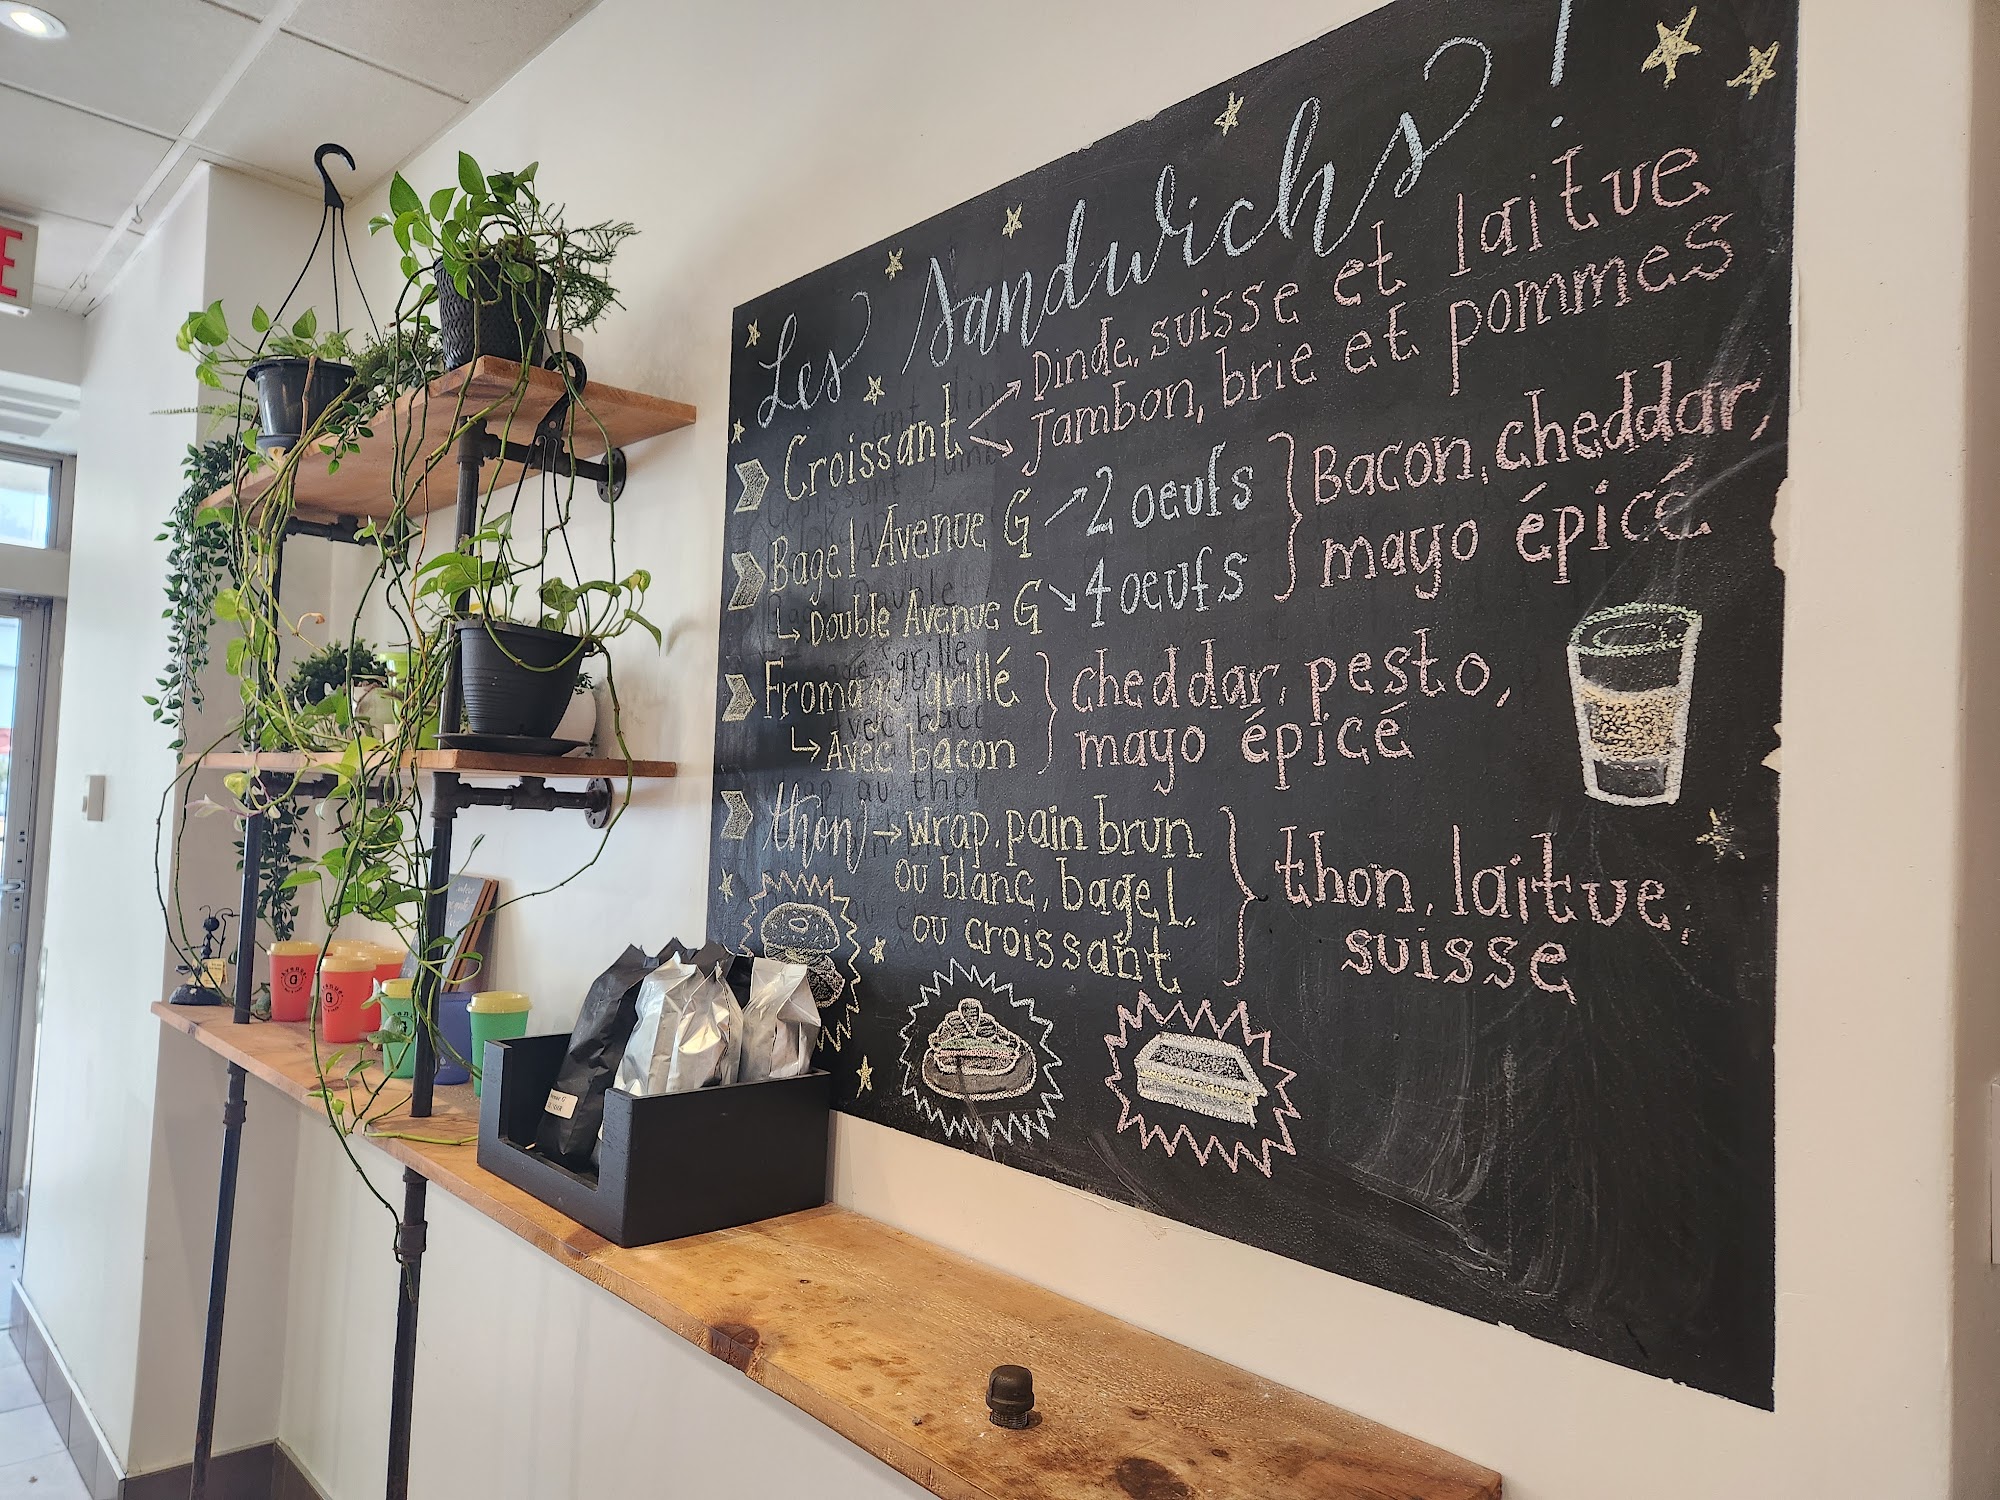 Les Sandwichs!
Croissant
Dinde, suisse et laitue
Jambon, brie et pommes
Bagel Avenue G → 2 oeufs
↳ Double Avenue G ↘ 4 oeufs
Bacon, cheddar,
mayo épicé
Fromage grillé
↳ Avec bacon
cheddar, pesto,
mayo épicé
thon → wrap, pain brun
ou blanc, bagel,
ou croissant
thon, laitue,
suisse
E
G